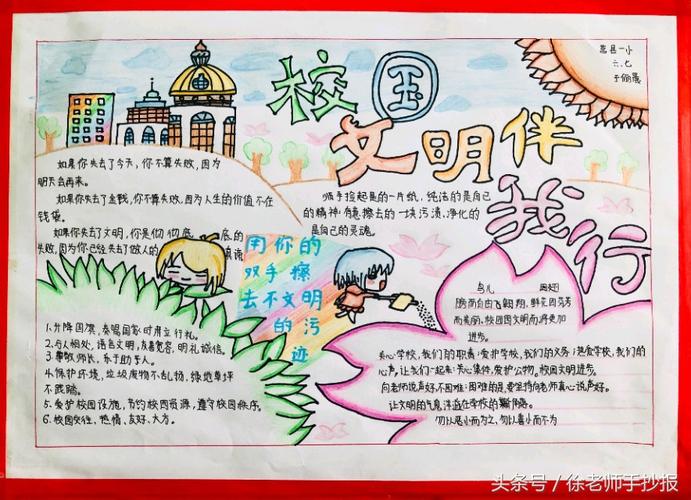 校园
文明伴
我行
莒县一小
六.七
如果你失去了今天,你不算失败,因为
明天会再来。
如果你失去了金钱,你不算失败,因为人生的价值不在
钱袋。
如果你失去了文明,你是彻彻底底的
失败,因为你已经失去了做人的真谛
师手捡起是的一片纸,纯洁的是自己
的精神;有意擦去的一块污渍,净化的
是自己的灵魂。
用你的
双手擦
去不文明
的污
迹
1.升降国旗,奏唱国歌时肃立行礼。
2.与人相处,语言文明,友善宽容,明礼诚信。
3.尊敬师长,乐于助学人。
4.保护环境,垃圾废物不乱扔,绿地草坪
不践踏。
5.爱护校园设施,节约校园资源,遵守校园秩序。
6.校园交往,热情、友好、大方。
鸟儿 因
腾而自由飞翱翔,鲜花因芳芳
而美丽,校园因文明而将更加
进步。
关心学校,我们的职责;爱护学校,我们的义务;热爱学校,我们的
心声,让我们一起来:关心集体,爱护公物。校园文明进步。
向老师说声好不困难;困难的是要坚持向老师真心说声好。
让文明的气息洋溢在学校的每个角落。
勿以恶小而为之,勿以善小而不为
头条号/徐老师手抄报